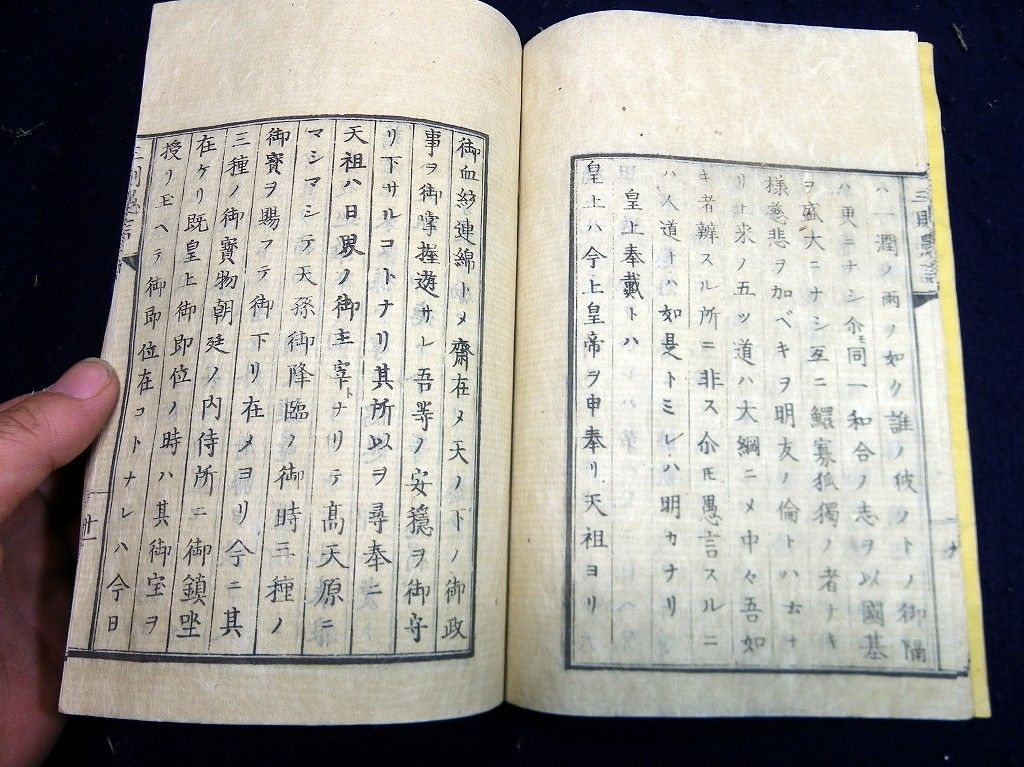 ハ一潤ノ雨ノ如ク誰ノ彼ノトノ御隔
ハ更ニナシ尒モ同一和合ノ志ヲ以國基
ヲ盛大ニナシ互ニ鰥寡孤獨ノ者ナキ
様慈悲ヲ加ベキヲ明友ノ倫トハ云ナ
リ上来ノ五ツ道ハ大綱ニメ中々吾如
キ者辨スル所ニ非ス尒モ愚言スルニ
ハ人道トハ如是トミレハ明カナリ
皇上奉戴トハ
皇上ハ今上皇帝ヲ申奉リ天祖ヨリ
御血紛連綿トメ齋在メ天ノ下ノ御政
事ヲ御掌握遊サレ吾等ノ安穏ヲ御守
リ下サルコトナリ其所以ヲ尋奉ニ
天祖ハ日界ノ御主宰トナリテ髙天原ニ
マシマシテ天孫御降臨ノ御時三種ノ
御寶ヲ賜フテ御下リ在メヨリ今ニ其
三種ノ御寶物朝廷ノ内侍所ニ御鎮坐
在ケリ既皇上御即位ノ時ハ其御宝ヲ
授リモヘテ御即位在コトナレハ今日